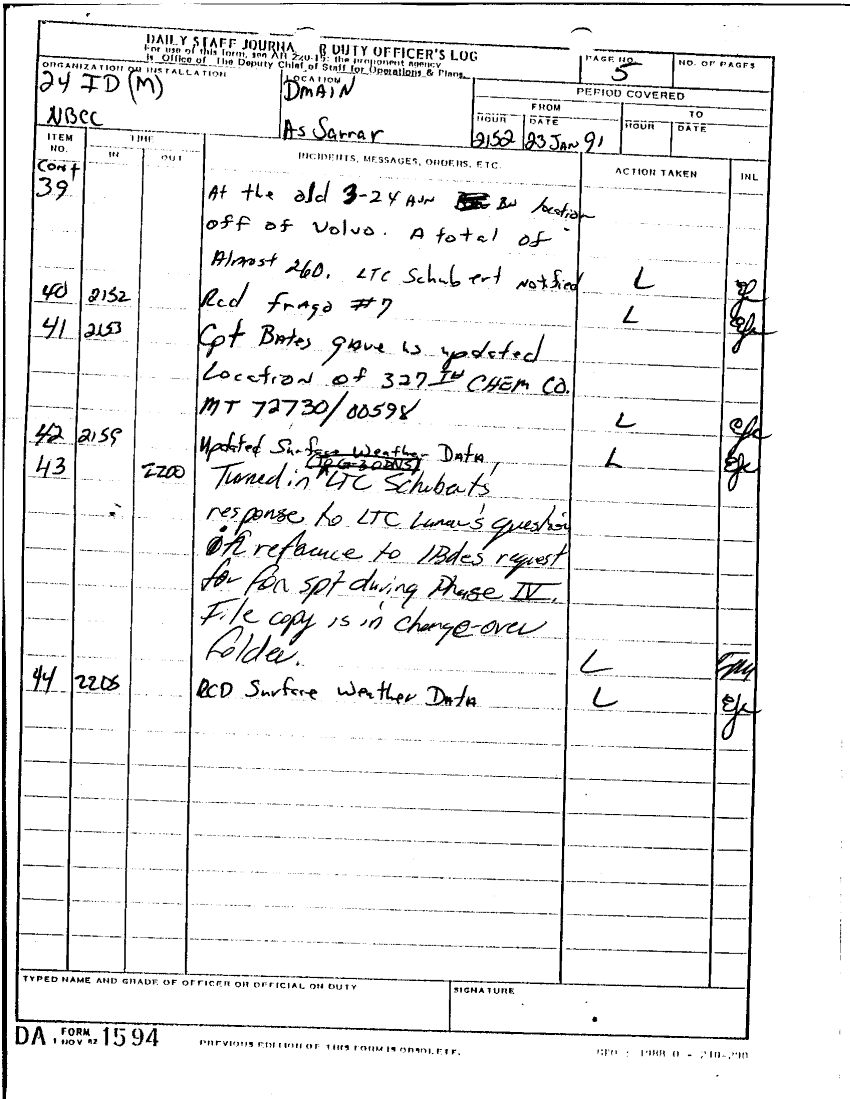 DAILY STAFF JOURNAL OR DUTY OFFICER'S LOG
For use of this form, see AR 220-15; the proponent agency
is Office of The Deputy Chief of Staff for Operations & Plans.
PAGE NO.
5
NO. OF PAGES
ORGANIZATION OR INSTALLATION
24 ID (M)
NBCC
LOCATION
DMAIN
As Sarrar
PERIOD COVERED
FROM
TO
HOUR
DATE
HOUR
DATE
2152
23 JAN 91
ITEM NO.
TIME
IN
OUT
INCIDENTS, MESSAGES, ORDERS, ETC.
ACTION TAKEN
INL
Cont
39
At the old 3-24 AVN BN location
off of Volvo. A total of
Almost 260. LTC Schubert notified L
40 2152 Rcd frago #7 L
41 2153 Cpt Bates gave us updated
Location of 327th CHEM CO.
MT 72730/00598 L
42 2159 Updated Surface Weather Data, L
43 2200 Turned in LTC Schubert's
response to LTC Lamar's question
in reference to 1Bdes request
for for spt during Phase IV.
File copy is in change-over
folder. L
44 2205 RCD Surface Weather Data L
TYPED NAME AND GRADE OF OFFICER OR OFFICIAL ON DUTY
SIGNATURE
DA FORM 1 NOV 62 1594
PREVIOUS EDITION OF THIS FORM IS OBSOLETE.